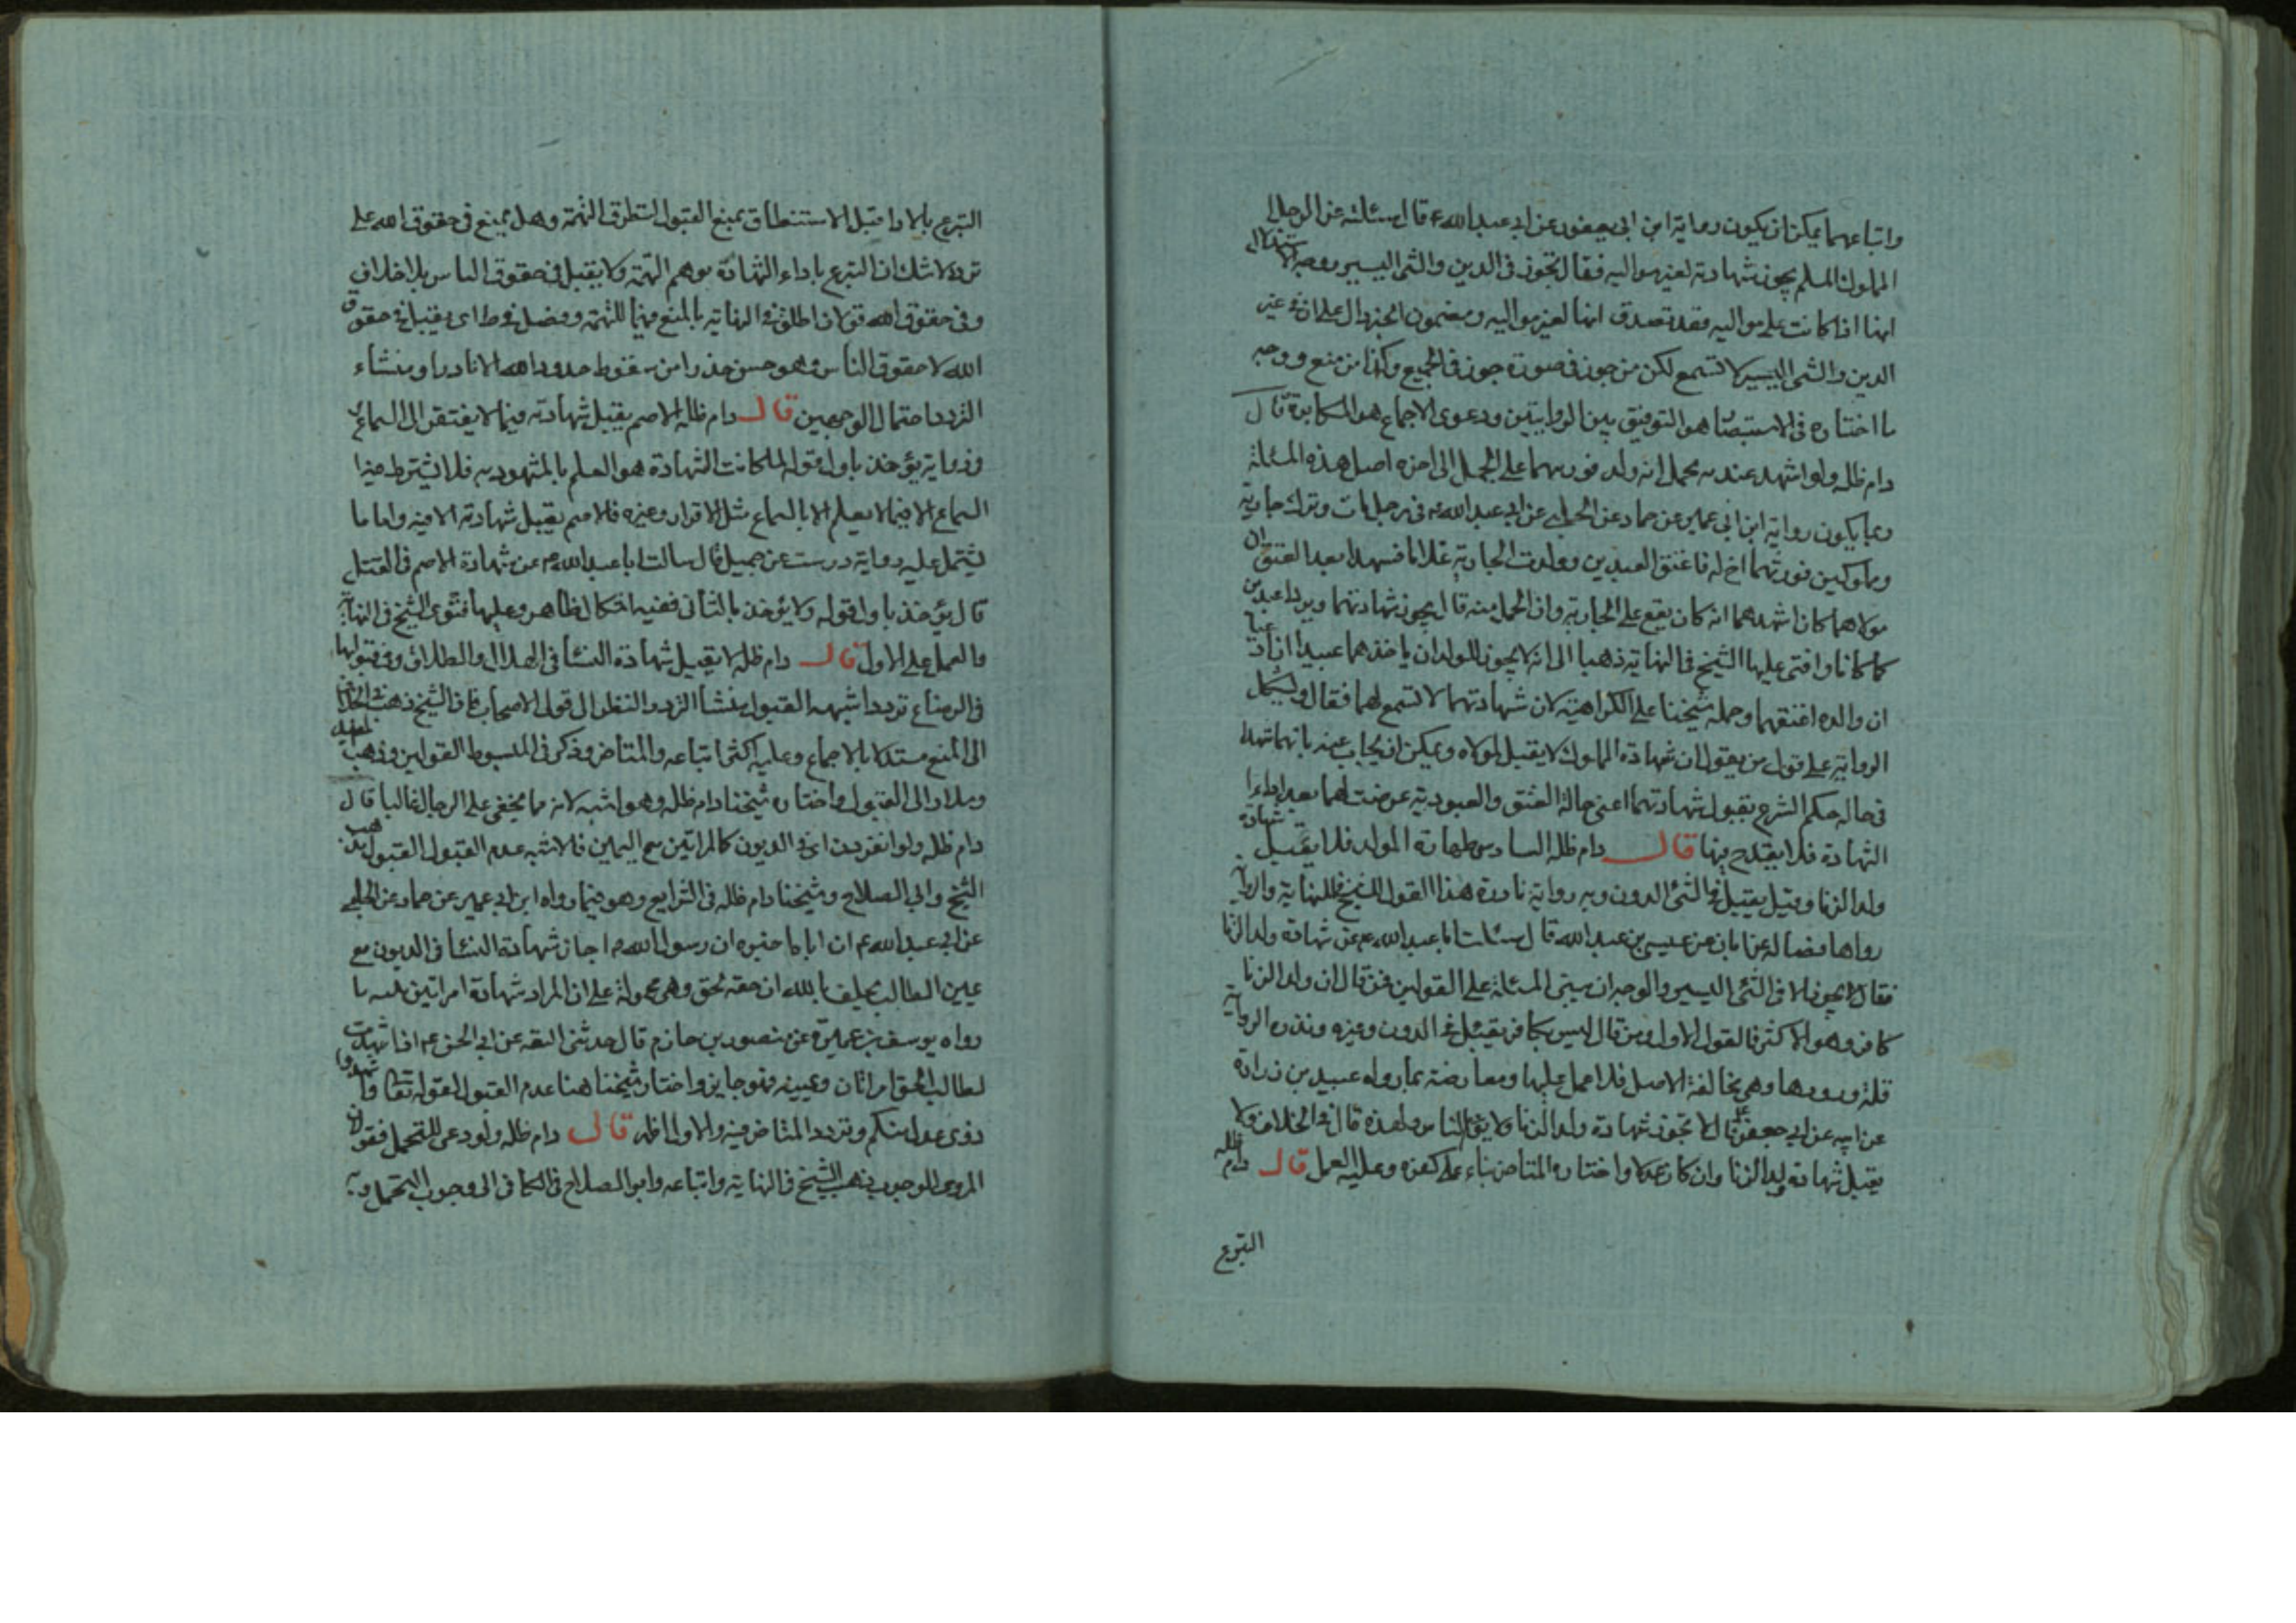 واتباعهما يمكن ان يكون رواية ابن ابي يعفور عن ابي عبدالله ع قال سئلته عن الرجل
المملوك المسلم يجوز شهادته لغير مواليه فقال تجوز في الدين والشئ اليسير ووجه الاستدلال
انها اذا كانت على مواليه فقد تصدق انها لغير مواليه ومضمون الخبر دال على ان في غير
الدين والشئ اليسير لا تسمع لكن من جوز في صورة جوز في الجميع وكذا من منع ووجه
ما اختاره في الاستبصار هو التوفيق بين الروايتين ودعوى الاجماع هو المكابرة قال
دام ظله ولو اشهد عبديه بحمل انه ولد فورثهما على الحمل الى اخره اصل هذه المسئلة
وعا يكون رواية ابن ابي عمير عن حماد عن الحلبي عن ابي عبدالله ع في رجل مات وترك جارية
ومملوكين فورثهما اخ له فاعتق العبدين وولدت الجارية غلاما فشهدا بعد العتق ان
مولاهما كان اشهدهما انه كان يقع على الجارية وان الحمل منه قال يجوز شهادتهما ويردا عبدين
كما كانا وافتى عليها الشيخ في النهاية ذهبا الى انه لا يجوز للولد ان ياخذهما عبيدا اذا ثبتا
ان والده اعتقهما وحمله شيخنا على الكراهية لان شهادتهما لا تسمع لهما فقال ويشكل
الرواية على قول من يقول ان شهادة المملوك لا يقبل لمولاه ويمكن ان يجاب عنه بانهما شهدا
في حالة حكم الشرع بقبول شهادتهما اعني حالة العتق والعبودية عرضت لهما بعد اداء
الشهادة فلا يقدح فيها قال دام ظله السادس طهارة المولد فلا يقبل شهادة
ولد الزنا وقيل يقبل في الشئ الدون وبه رواية نادرة هذا القول للشيخ في النهاية والرواية
رواها فضاله عن ابان عن عيسى بن عبدالله قال سئلت ابا عبدالله ع عن شهادة ولد الزنا
فقال لا يجوز الا في الشئ اليسير والوجه ان يبتنى المسئلة على القولين فمن قال ان ولد الزنا
كافر وهو الاكثر فالقول الاول ومن قال ليس بكافر يقبل في الدون وغيره ونذره الرواية
قلة ورودها وهي مخالفة الاصل فلا عمل عليها ومعارضة بما رواه عبيد بن زرارة
عن ابيه عن ابي جعفر ع قال لا تجوز شهادة ولد الزنا ولا يؤم الناس ولهذه قال في الخلاف ولا
يقبل شهادة ولد الزنا وان كان عدلا واختاره المتاخر بناء على كفره وعليه العمل قال دام ظله
التبرع
التبرع بالاداء قبل الاستنطاق يمنع القبول لتطرق التهمة وهل يمنع في حقوق الله على
تردد لا شك ان التبرع باداء الشهادة يوهم التهمة ولا يقبل في حقوق الناس بلا خلاف
وفي حقوق الله قولان اطلق في النهاية بالمنع فيها للتهمة وفصل في ط اي يقبل في حقوق
الله لا حقوق الناس وهو حسن حذرا من سقوط حدود الله الا نادرا ومنشاء
التردد احتمال الوجهين قال دام ظله الاصم يقبل شهادته فيما لا يفتقر الى السماع
وفي رواية يؤخذ باول قوله لما كانت الشهادة هو العلم بالمشهود به فلا يشترط فيها
السماع الا فيما لا يعلم الا بالسماع مثل الاقرار وغيره فالاصم يقبل شهادته الا فيه واما ما
يشتمل عليه رواية درست عن جميل قال سالت ابا عبدالله ع عن شهادة الاصم في القتل
قال يؤخذ باول قوله ولا يؤخذ بالثاني ففيه اشكال ظاهر وعليها فتوى الشيخ في النهاية
والعمل على الاول قال دام ظله لا يقبل شهادة النسا في الهلال والطلاق وفي قبولها
في الرضاع تردد اشبهه القبول منشا التردد النظر الى قول الاصحاب فان الشيخ ذهب في الخلاف
الى المنع مستدلا بالاجماع وعليه اكثر اتباعه والمتاخر وذكر في المبسوط القولين وذهب المفيد
وسلار الى القبول واختاره شيخنا دام ظله وهو اشبه لانه مما يخفى على الرجال غالبا قال
دام ظله ولو انفردن اي في الديون كالمراتين مع اليمين فالاشبه عدم القبول القبول مذهب
الشيخ وابي الصلاح وشيخنا دام ظله في الشرايع وهو فيما رواه ابن ابي عمير عن حماد عن الحلبي
عن ابي عبدالله ع ان اباه اخبره ان رسول الله ص اجاز شهادة النسا في الديون مع
يمين الطالب يحلف بالله ان حقه لحق وهي محمولة على ان المراد شهادة امراتين يدل عليه ما
رواه يوسف بن عميرة عن منصور بن حازم قال حدثني الثقة عن ابي الحسن ع اذا شهدت
لطالب الحق امراتان ويمينه فهو جايز واختار شيخنا هنا عدم القبول لقوله تعالى واشهدوا
ذوى عدل منكم وتردد المتاخر فيه والاول اظهر قال دام ظله ولو دعى للتحمل فقولان
المروى الوجوب ذهب الشيخ في النهاية واتباعه وابو الصلاح في الكافي الى وجوب التحمل وبه